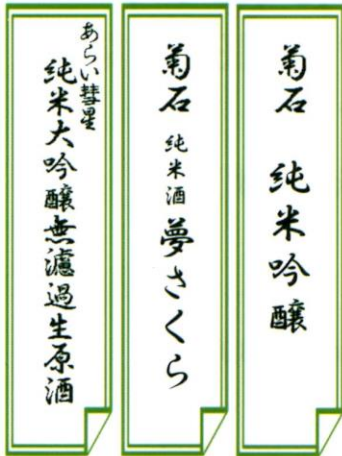 菊石 純米吟醸
菊石 純米酒 夢さくら
あらい彗星
純米大吟醸無濾過生原酒